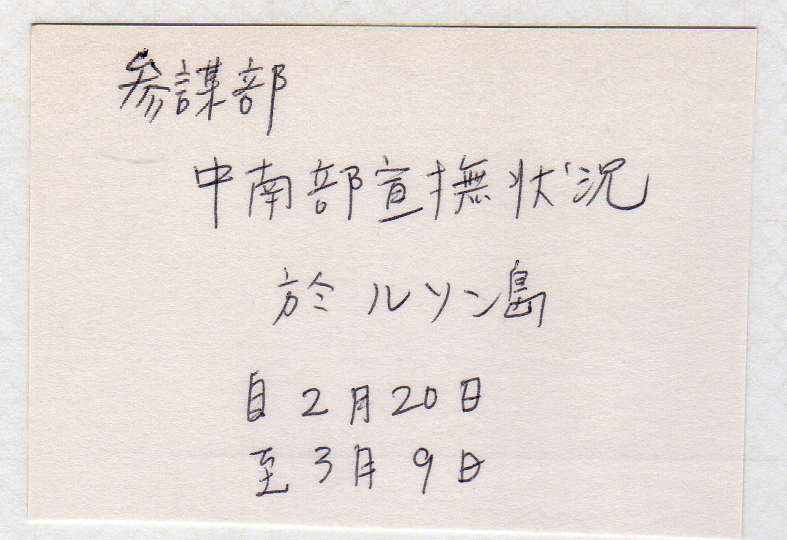 参謀部
中南部宣撫状況
於ルソン島
自2月20日
至3月9日